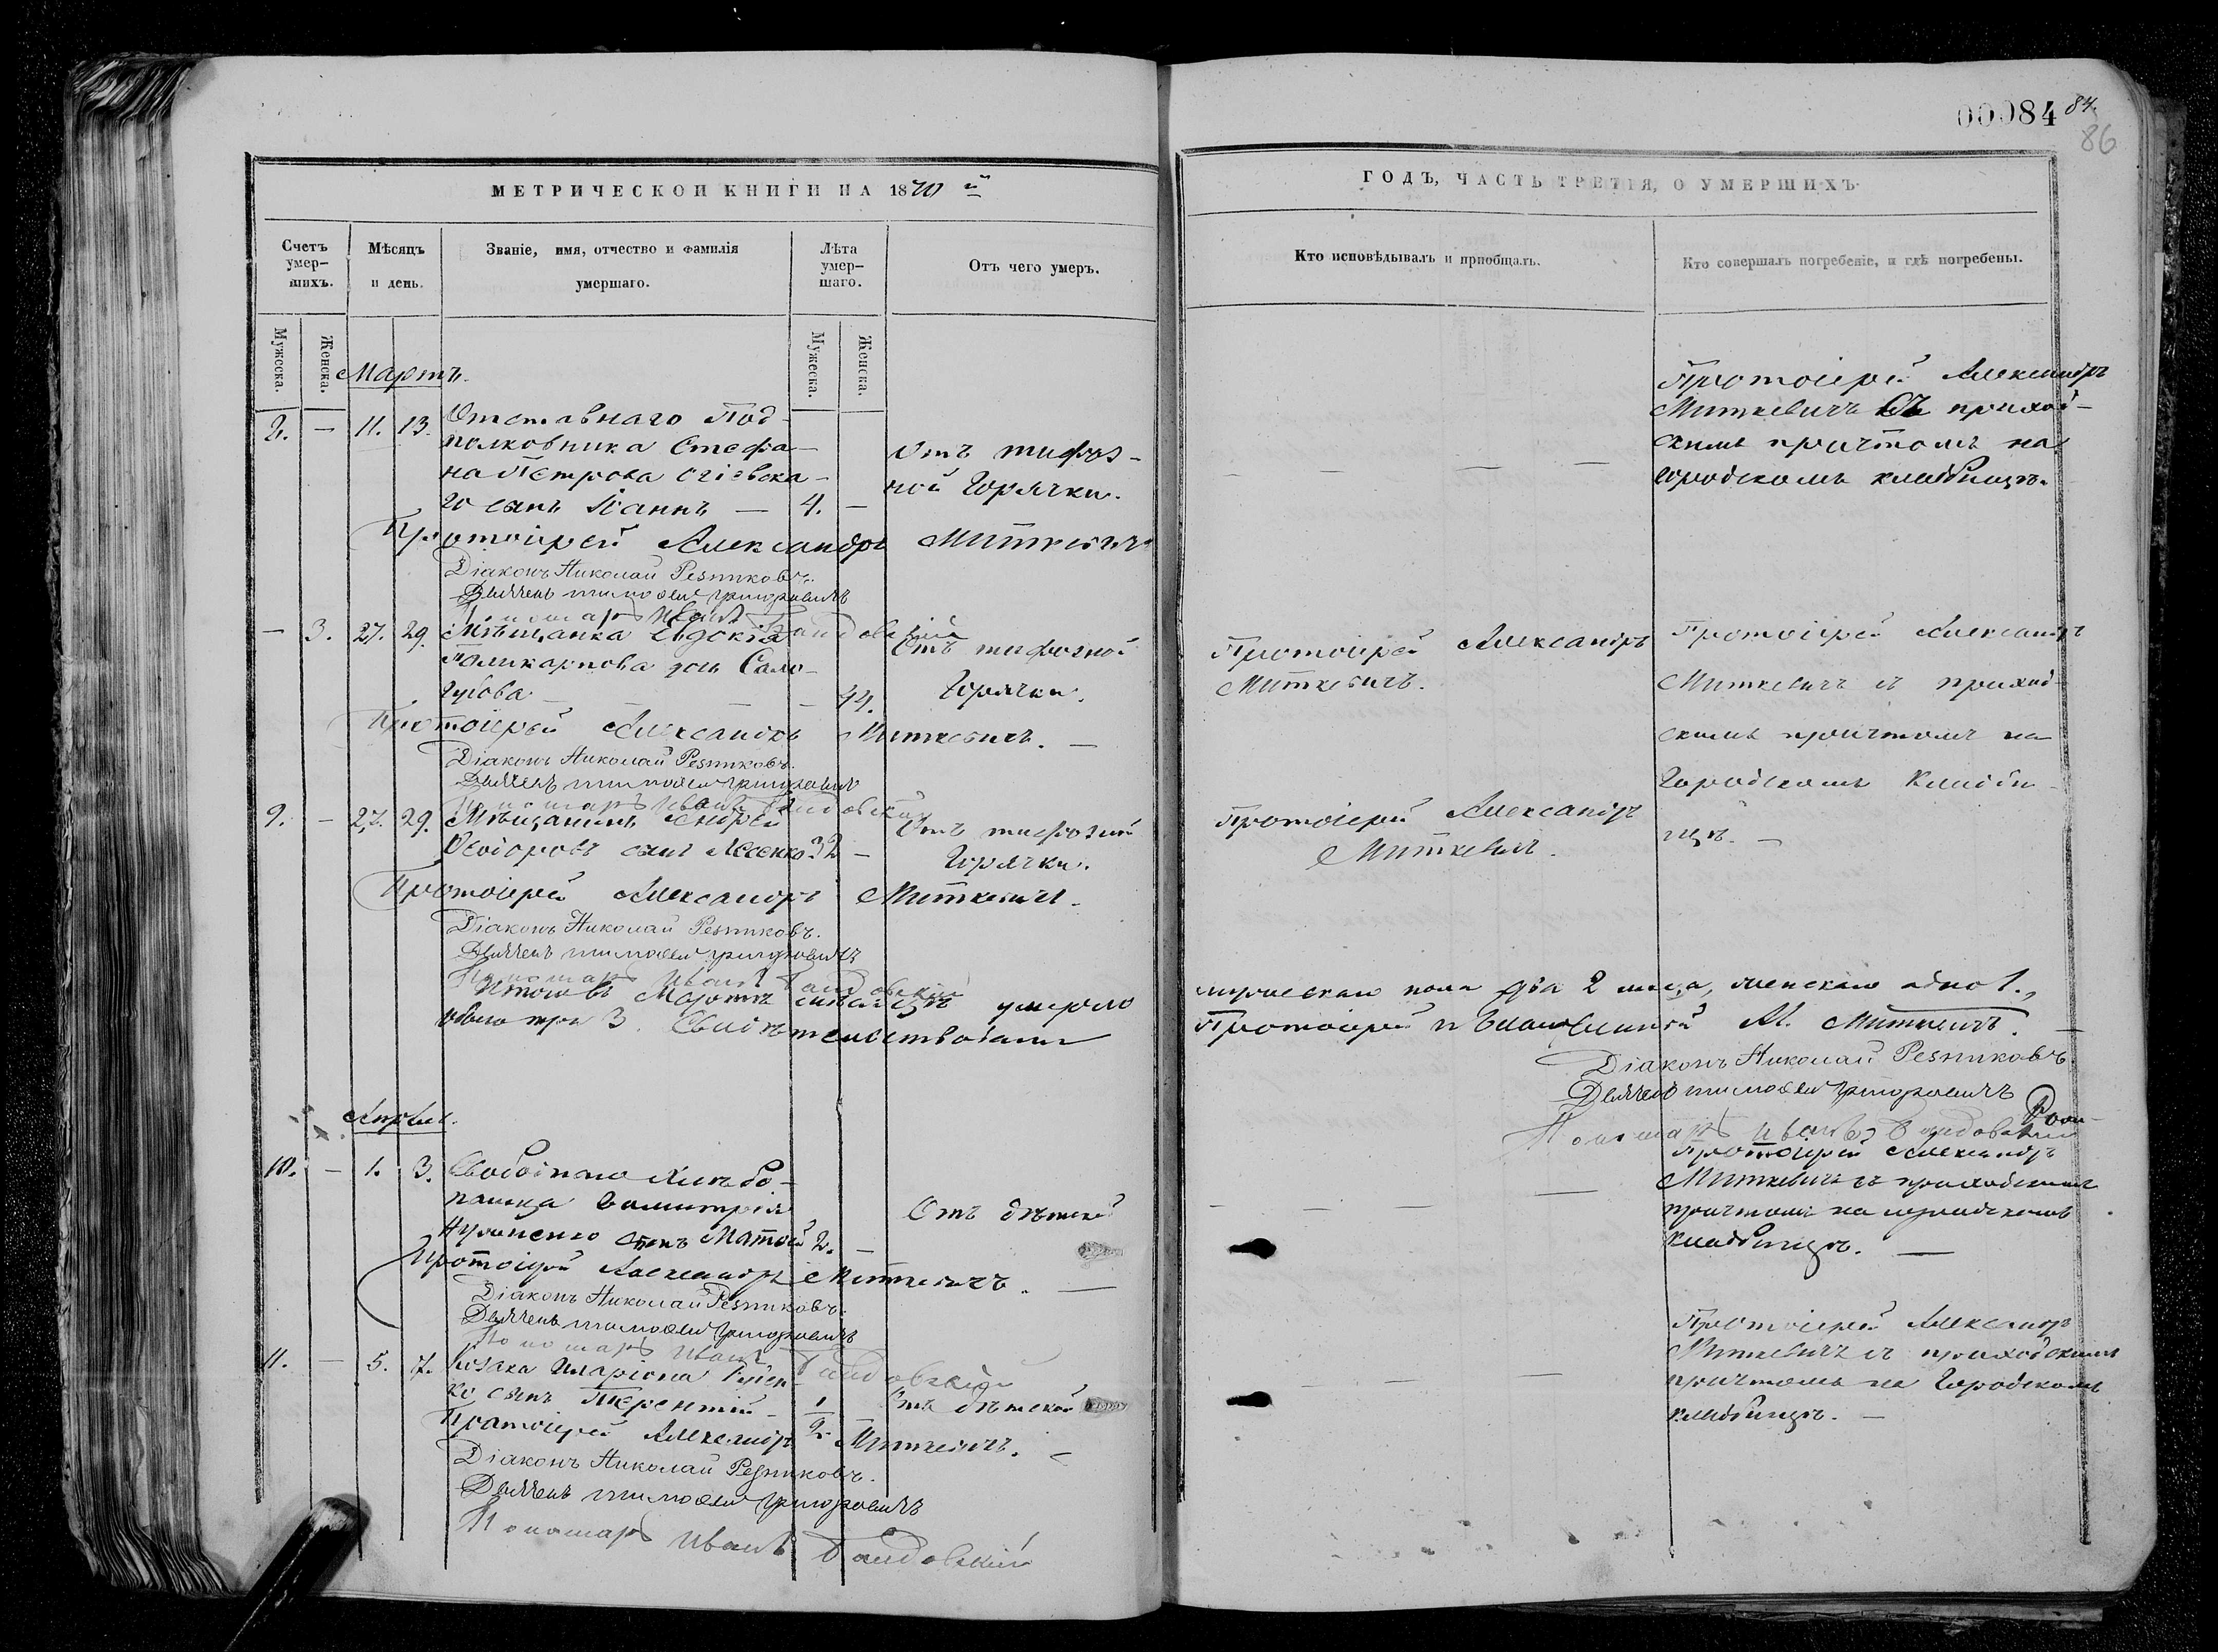 00084 84.
86
МЕТРИЧЕСКОЙ КНИГИ НА 1870 й
Счетъ умер-шихъ.
Мѣсяцъ и день.
Званіе, имя, отчество и фамилія умершаго.
Лѣта умер-шаго.
Отъ чего умеръ.
Мужеска.
Женска.
Мужеска.
Женска.
Мартъ.
— 11. 13. Отставнаго Под-
полковника Стефа-
на Петрова
го сынъ Іоаннъ — 4. —
Отъ тифоз-
ной Горячки.
Протоіерей Александръ Миткевичъ
Діаконъ Николай Резниковъ.
Дьячекъ Тимоѳей Григоровичъ
Пономарь Иванъ
— 3. 27. 29. Мѣщанка Евдокія
Поликарпова дочь Сало-
губова — — 44.
Отъ тифозной
Горячки.
Протоіерей Александръ Миткевичъ. —
Діаконъ Николай Резниковъ.
Дьячекъ Тимоѳей Григоровичъ
Пономарь Иванъ
9. — 27. 29. Мѣщанинъ Андрей
Ѳеодоровъ сынъ 32 —
Отъ тифозной
Горячки.
Протоіерей Александръ Миткевичъ.
Діаконъ Николай Резниковъ.
Дьячекъ Тимоѳей Григоровичъ
Пономарь Иванъ
Итого въ Мартѣ мѣсяцѣ умерло
обоего три 3. Свидѣтельствовали
Апрѣль.
10. — 1. 3. Свободнаго Хлѣбо-
пашца Димитрія
сынъ Матѳей 2. —
Отъ дѣтской
Протоіерей Александръ Миткевичъ. —
Діаконъ Николай Резниковъ.
Дьячекъ Тимоѳей Григоровичъ
Пономарь Иванъ
11. — 5. 7. Козака Иларіона
ко сынъ Терентій — 1/2 —
Отъ дѣтской
Протоіерей Александръ Миткевичъ.
Діаконъ Николай Резниковъ.
Дьячекъ Тимоѳей Григоровичъ
Пономарь Иванъ
ГОДЪ, ЧАСТЬ ТРЕТІЯ, О УМЕРШИХЪ.
Кто исповѣдывалъ и приобщалъ.
Кто совершалъ погребеніе, и гдѣ погребены.
— — —
Протоіерей Александръ
Миткевичъ съ приход-
скимъ причтомъ на
городскомъ кладбищѣ.
Протоіерей Александръ
Миткевичъ.
Протоіерей Александръ
Миткевичъ съ приход-
скимъ причтомъ на
Городскомъ Кладби-
щѣ. —
Протоіерей Александръ
Миткевичъ.
мужескаго пола два 2 женскаго одно 1.,
Протоіерей Миткевичъ. —
Діаконъ Николай Резниковъ.
Дьячекъ Тимоѳей Григоровичъ
Пономарь Иванъ
— — — —
Протоіерей Александръ
Миткевичъ съ приходскимъ
причтомъ на городскомъ
кладбищѣ. —
— — —
Протоіерей Александръ
Миткевичъ съ приходскимъ
причтомъ на Городскомъ
кладбищѣ. —